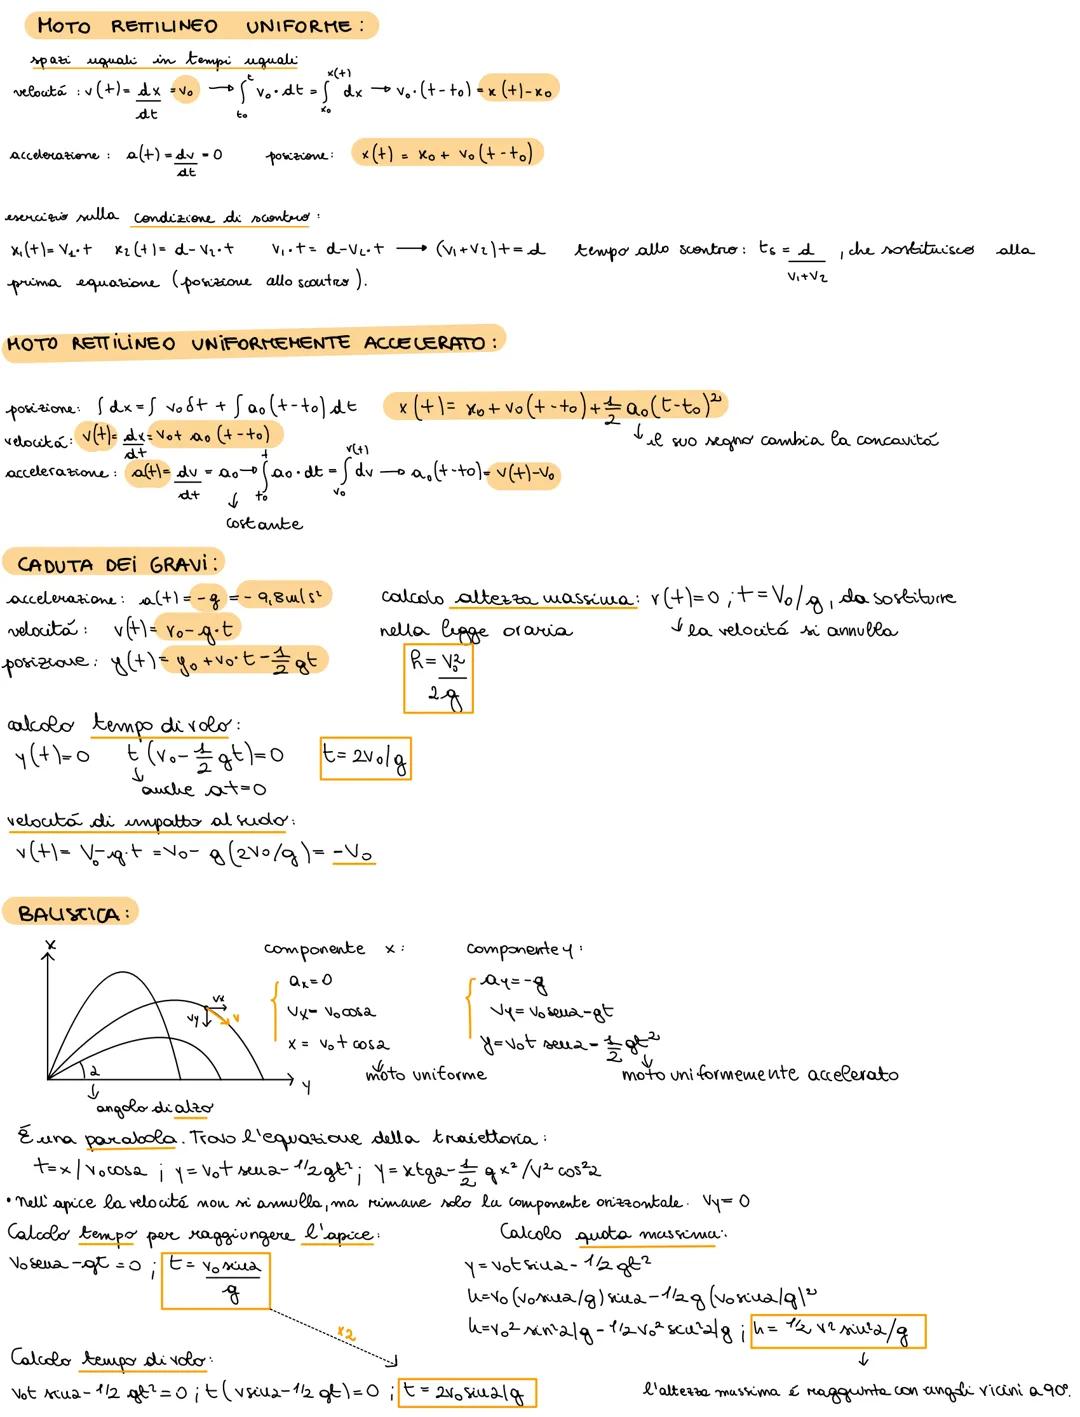 MOTO RETTILINEO UNIFORME :
spazi uguali in tempi uguali
velocitá : v(t)= dx/dt = v₀ → ∫ₜ₀ᵗ v₀·dt = ∫ₓ₀ˣ⁽ᵗ⁾ dx → v₀·(t-t₀) = x(t)-x₀
accelerazione : a(t) = dv/dt = 0 posizione: x(t) = x₀ + v₀(t-t₀)
esercizio sulla condizione di scontro :
x₁(t)= V₁·t x₂(t)= d-V₂·t V₁·t = d-V₂·t → (V₁+V₂)t = d tempo allo scontro: ts = d/(V₁+V₂), che sostituisco alla
prima equazione (posizione allo scontro).
MOTO RETTILINEO UNIFORMEMENTE ACCELERATO :
posizione: ∫dx = ∫ v₀δt + ∫a₀(t-t₀)dt x(t)= x₀+v₀(t-t₀)+1/2 a₀(t-t₀)²
↓ il suo segno cambia la concavitá
velocitá: v(t)= dx/dt = v₀+ a₀(t-t₀)
accelerazione : a(t)= dv/dt = a₀ → ∫ₜ₀ᵗ a₀·dt = ∫ᵥ₀ᵛ⁽ᵗ⁾ dv → a₀(t-t₀)= v(t)-v₀
↓
costante
CADUTA DEI GRAVI :
accelerazione: a(t) = -g = -9,8m/s²
velocitá : v(t)= v₀-g·t
posizione: y(t)= y₀+v₀·t-1/2 gt
calcolo altezza massima: v(t)=0 ; t=V₀/g, da sostituire
nella legge oraria ↓ la velocitá si annulla
h = V₀²/2g
calcolo tempo di volo :
y(t)=0 t(v₀-1/2 gt)=0 t= 2v₀/g
↓
anche a t=0
velocitá di impatto al suolo:
v(t)= V₀-g·t = v₀- g(2v₀/g)= -V₀
BALISTICA :
x
vx
vy
v
2
y
angolo di alzo
componente x :
ax=0
Vx= V₀cos2
x = v₀t cos2
↓
moto uniforme
componente y :
ay=-g
Vy= V₀sen2-gt
y=v₀t sen2-1/2 gt²
↓
moto uniformemente accelerato
É una parabola. Trovo l'equazione della traiettoria :
t=x/v₀cos2 ; y=v₀t sen2-1/2 gt² ; y=xtg2-1/2 gx²/V²cos²2
• Nell'apice la velocitá non si annulla, ma rimane solo la componente orizzontale. Vy=0
Calcolo tempo per raggiungere l'apice:
V₀sen2-gt=0 ; t = v₀sin2/g
x2
Calcolo tempo di volo:
v₀t sin2-1/2 gt²=0 ; t(vsin2-1/2 gt)=0 ; t = 2v₀sin2/g
Calcolo quota massima:
y=v₀tsin2-1/2 gt²
h=v₀(v₀sin2/g)sin2-1/2g(v₀sin2/g)²
h=v₀²sin²2/g-1/2v₀²sin²2/g ; h=1/2 v²sin²2/g
↓
l'altezza massima é raggiunta con angoli vicini a 90°.